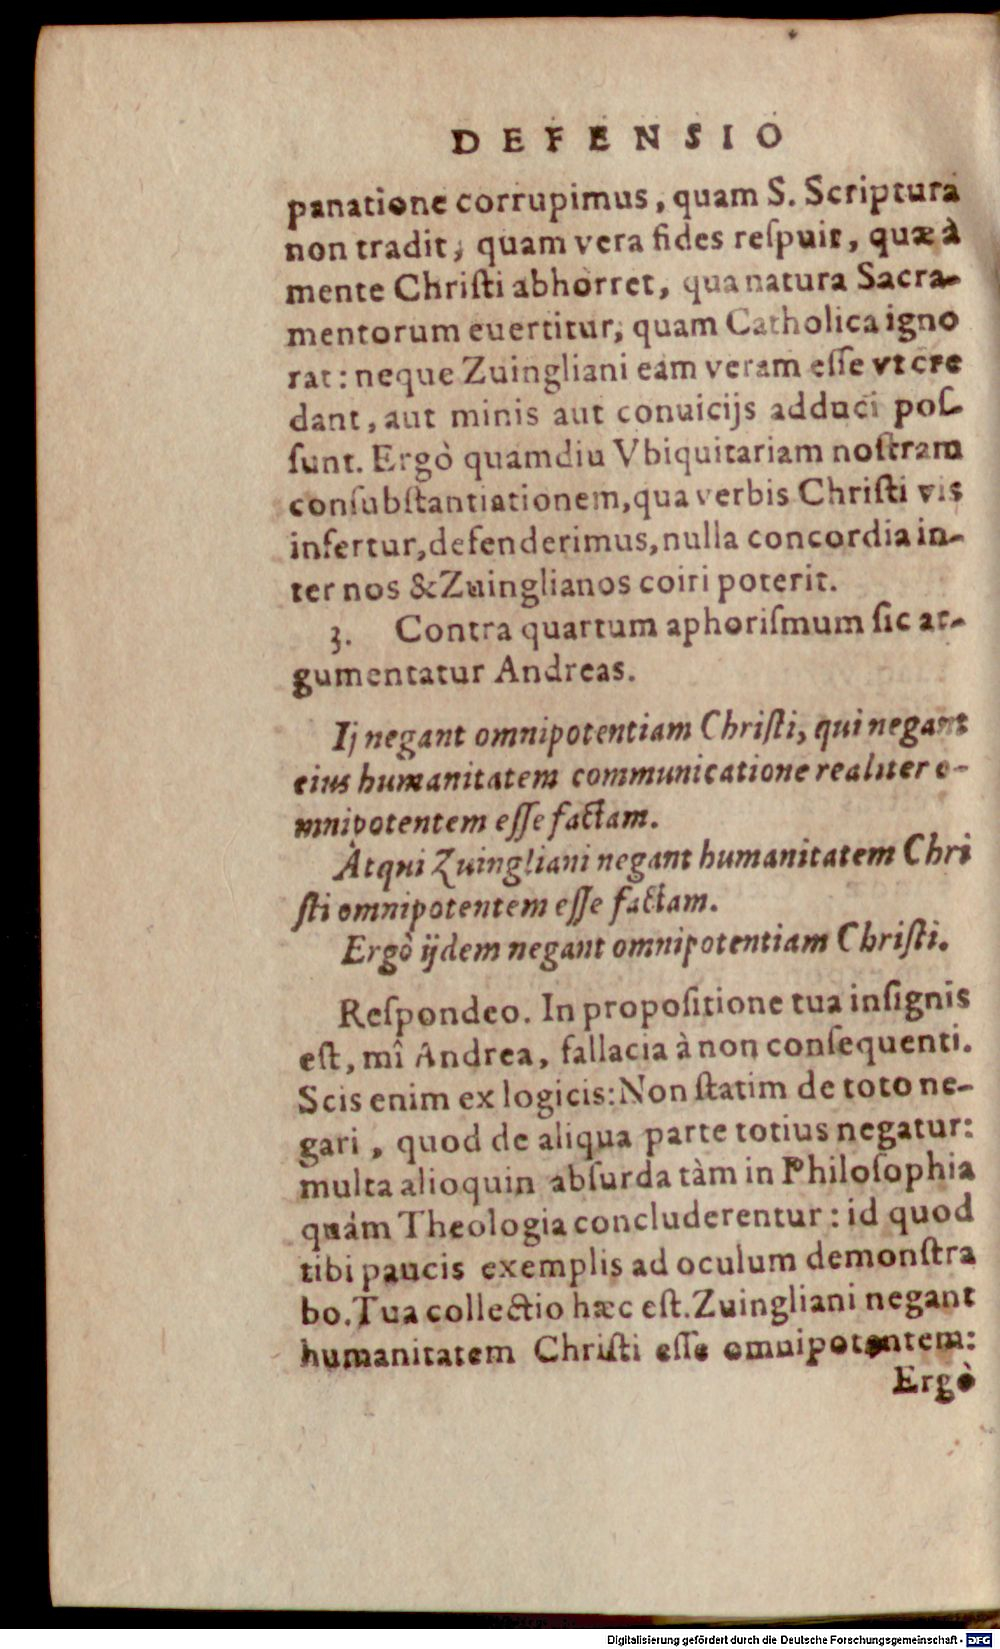 DEFENSIO
panatione corrupimus, quam S. Scriptura
non tradit, quam vera fides reſpuit, quæ à
mente Chriſti abhorret, qua natura Sacra-
mentorum euertitur, quam Catholica igno
rat: neque Zuingliani eam veram eſſe vt cre
dant, aut minis aut conuicijs adduci poſ-
ſunt. Ergò quamdiu Vbiquitariam noſtram
conſubſtantiationem, qua verbis Chriſti vis
infertur, defenderimus, nulla concordia in-
ter nos & Zuinglianos coiri poterit.
3. Contra quartum aphoriſmum ſic ar-
gumentatur Andreas.
Ij negant omnipotentiam Chriſti, qui negant
eius humanitatem communicatione realiter o-
mnipotentem eſſe factam.
Atqui Zuingliani negant humanitatem Chri
ſti omnipotentem eſſe factam.
Ergò ijdem negant omnipotentiam Chriſti.
Reſpondeo. In propoſitione tua inſignis
eſt, mî Andrea, fallacia à non conſequenti.
Scis enim ex logicis: Non ſtatim de toto ne-
gari, quod de aliqua parte totius negatur:
multa alioquin abſurda tàm in Philoſophia
quàm Theologia concluderentur: id quod
tibi paucis exemplis ad oculum demonſtra
bo. Tua collectio hæc eſt. Zuingliani negant
humanitatem Chriſti eſſe omnipotentem:
Ergò
Digitalisierung gefördert durch die Deutsche Forschungsgemeinschaft - DFG